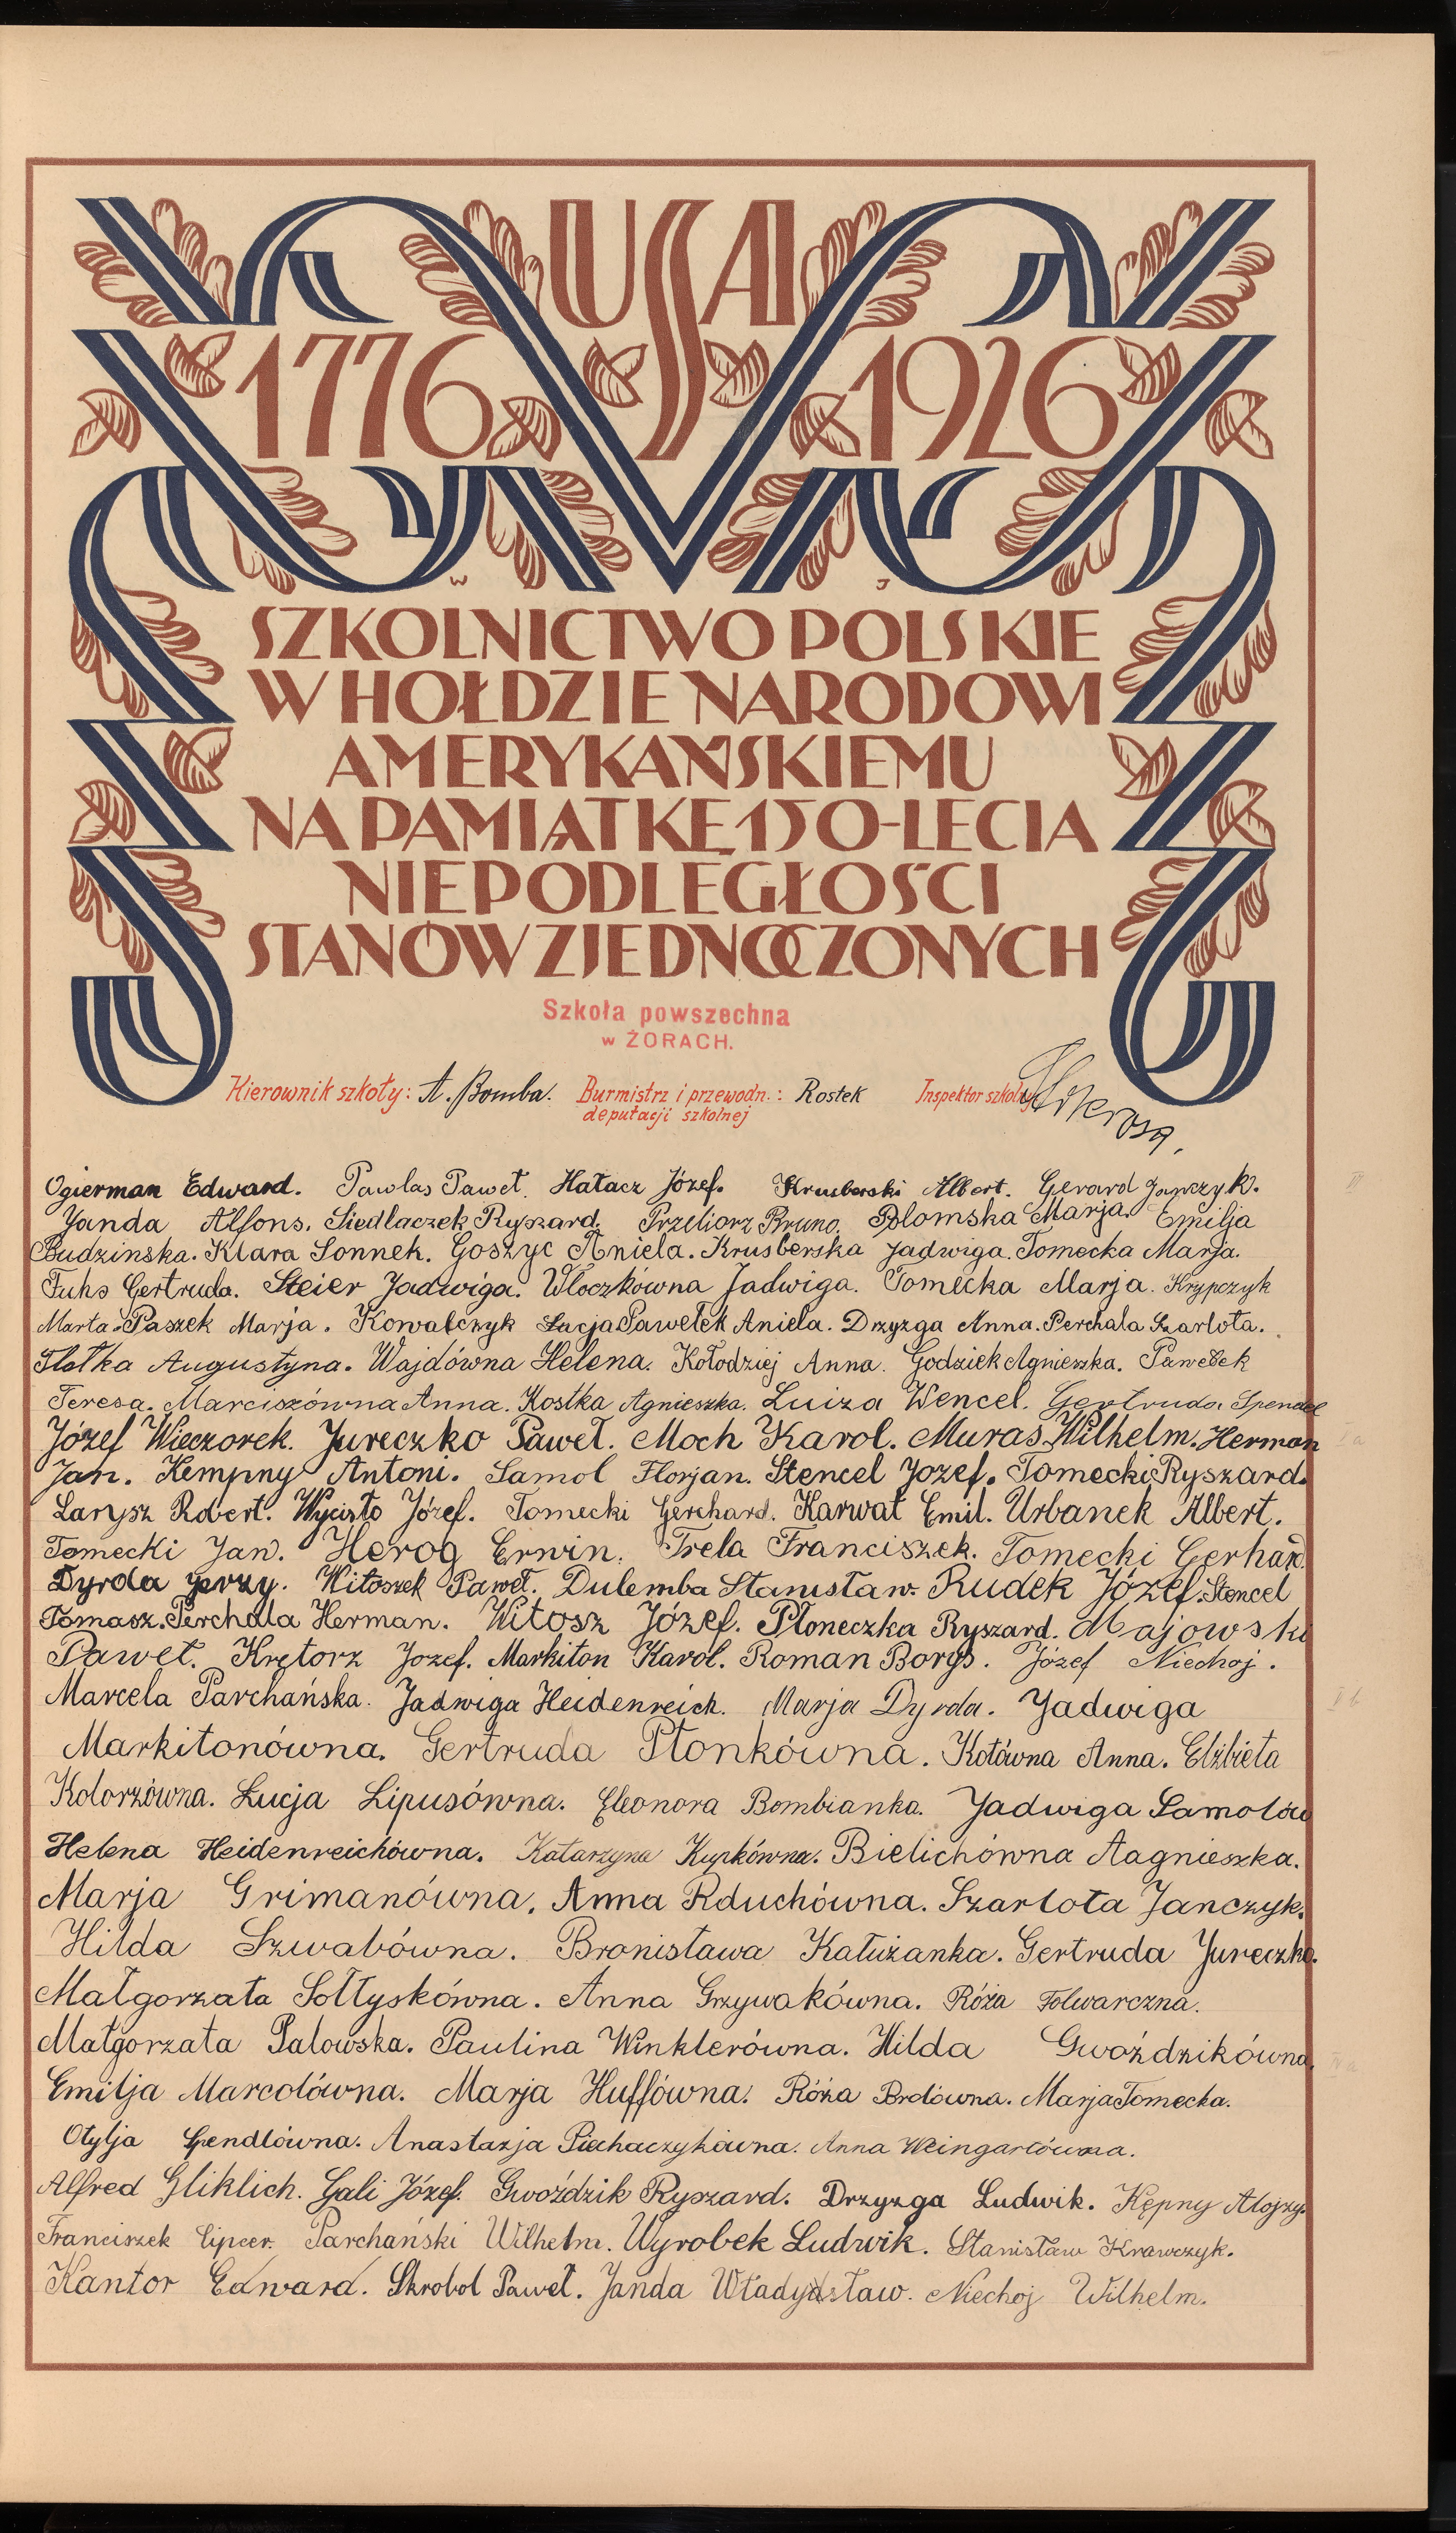 USA
1776 1926
W J
SZKOLNICTWO POLSKIE
W HOŁDZIE NARODOWI
AMERYKAŃSKIEMU
NA PAMIĄTKĘ 150-LECIA
NIEPODLEGŁOŚCI
STANÓW ZJEDNOCZONYCH
Szkoła powszechna
w ŻORACH.
Kierownik szkoły: A. Bomba. Burmistrz i przewodn.: Rostek Inspektor szkolny
deputacji szkolnej
Ogierman Edward. Pawlas Paweł. Hałacz Józef. Krusberski Albert. Gerard Janczyk.
Janda Alfons. Siedlaczek Ryszard. Przeliorz Bruno. Polomska Marja. Emilja
Budzinska. Klara Sonnek. Goszyc Aniela. Krusberska Jadwiga. Tomecka Marja.
Fuhs Gertruda. Steier Jadwiga. Włoczkówna Jadwiga. Tomecka Marja. Krypczyk
Marta. Paszek Marja. Kowalczyk Łucja Pawełek Aniela. Drzyzga Anna. Perchala Szarlota.
Flotka Augustyna. Wajdówna Helena. Kołodziej Anna. Godziek Agnieszka. Pawełek
Teresa. Marciszówna Anna. Kostka Agnieszka. Luiza Wencel. Gertruda Spendel
Józef Wieczorek. Jureczko Paweł. Moch Karol. Muras Wilhelm. Herman
Jan. Kempny Antoni. Samol Florjan. Stencel Jozef. Tomecki Ryszard.
Larysz Robert. Wycisło Józef. Tomecki Gerchard. Karwat Emil. Urbanek Albert.
Tomecki Jan. Herog Erwin. Trela Franciszek. Tomecki Gerhard.
Dyrda Jerzy. Witoszek Paweł. Dulemba Stanisław. Rudek Józef. Stencel
Tomasz. Perchala Herman. Witosz Józef. Płoneczka Ryszard. Majowski
Paweł. Krętorz Jozef. Markiton Karol. Roman Borys. Józef Niechoj.
Marcela Parchańska. Jadwiga Heidenreich. Marja Dyrda. Jadwiga
Markitonówna. Gertruda Płonkówna. Kotówna Anna. Elżbieta
Kolorzówna. Łucja Lipusówna. Eleonora Bombianka. Jadwiga Samolów
Helena Heidenreichówna. Katarzyna Kupkówna. Bielichówna Aagnieszka.
Marja Grimanówna. Anna Rduchówna. Szarlota Janczyk.
Hilda Szwabówna. Bronisława Kałużanka. Gertruda Jureczko.
Małgorzata Sołtyskówna. Anna Grzywakówna. Róża Folwarczna.
Małgorzata Palowska. Paulina Winklerówna. Hilda Gwoździkówna.
Emilja Marcolówna. Marja Huffówna. Róża Brdówna. Marja Tomecka.
Otylja Spendlówna. Anastazja Piechaczykówna. Anna Weingartówna.
Alfred Gliklich. Gali Józef. Gwoździk Ryszard. Drzyzga Ludwik. Kępny Alojzy.
Franciszek Lipcer. Parchański Wilhelm. Wyrobek Ludwik. Stanisław Krawczyk.
Kantor Edward. Skrobol Paweł. Janda Władysław. Niechoj Wilhelm.